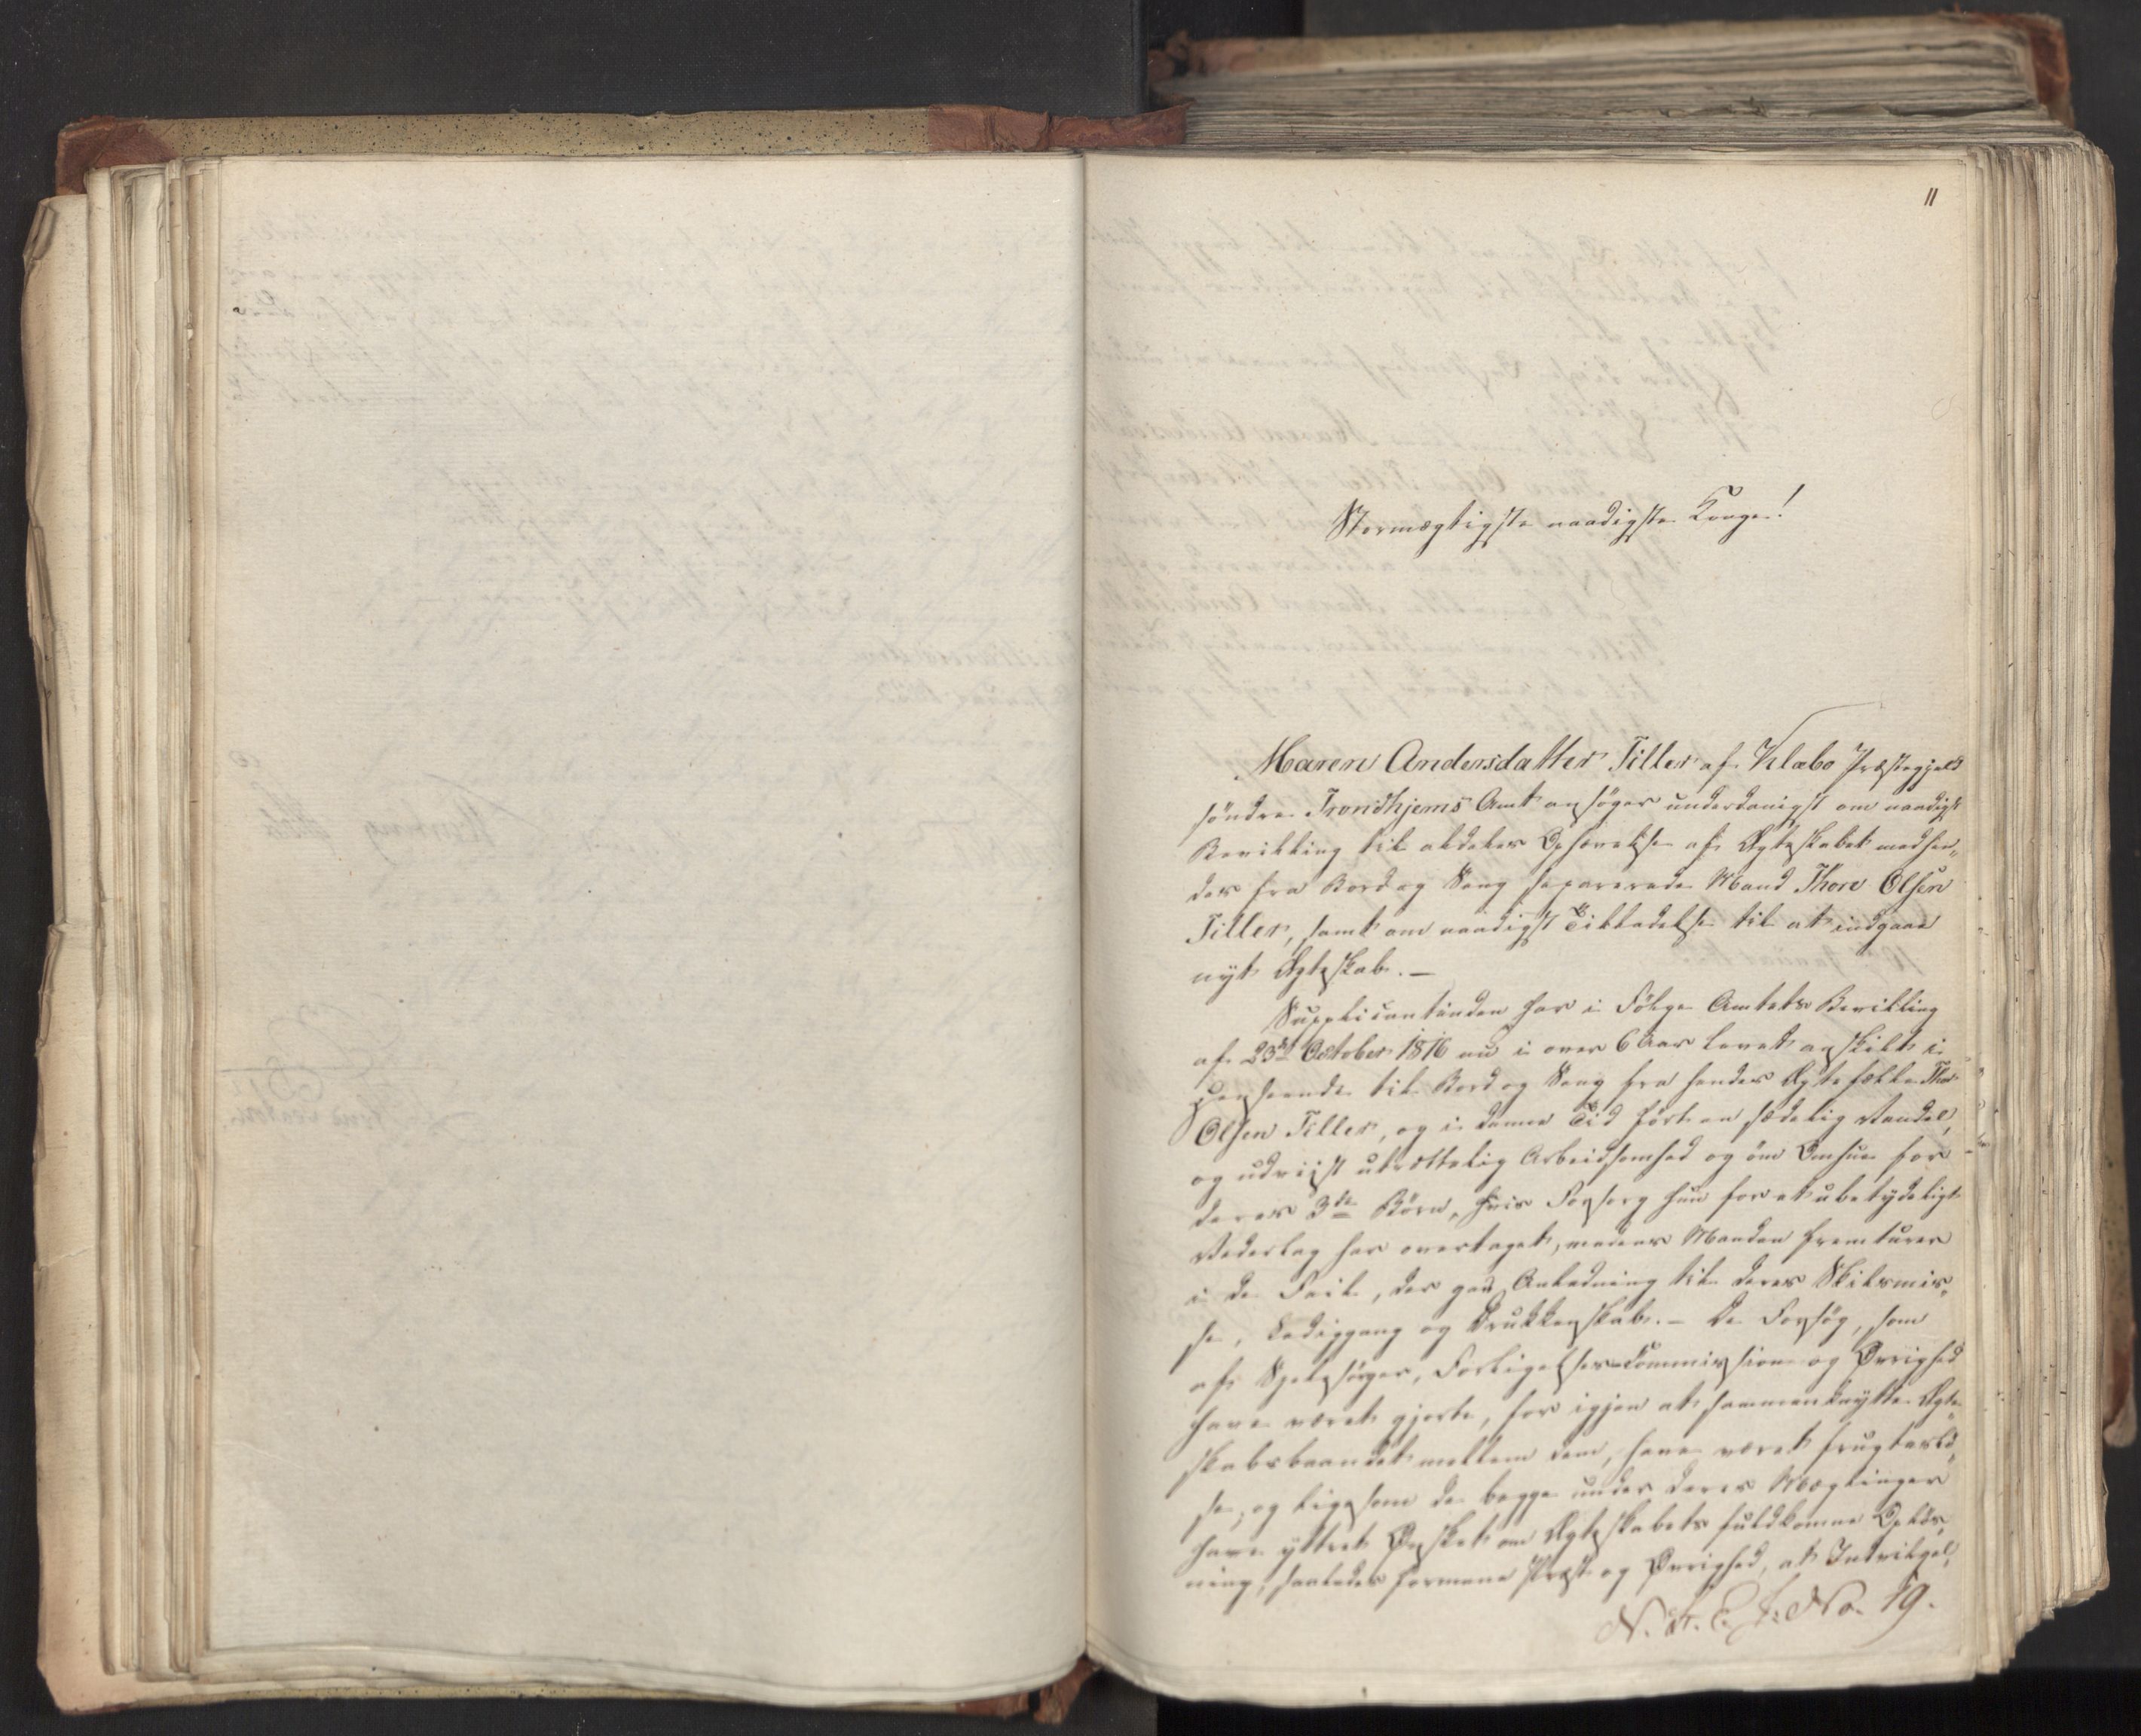 11
Stormægtigste naadigste Konge!
Maren Andersdatter Tiller af Klæbo Præstegjeld
söndre Trondhjems Amt ansöger underdanigst om naadigst
Bevilling til aldeles Ophævelse af Ægteskabet med hen„
des fra Bord og Seng separerede Mand Thore Olsen
Tiller, samt om naadigst Tilladelse til at indgaae
nyt Ægteskab. —
Supplicantinden har i Fölge Amtets Bevilling
af 23de October 1816 nu i over 6 Aar levet adskilt i
Henseende til Bord og Seng fra hendes Ægtefælle Thore
Olsen Tiller, og i denne Tid fört en sædelig Vandel,
og udviist utrættelig Arbeidsomhed og öm Omhue for
deres 3de Börn, hvis Forsorg hun for et ubetydeligt
Vederlag har overtaget, medens Manden fremturer
i de Feil, der gav Anledning til deres Skilsmis„
se, Lediggang og Drukkenskab. — De Forsög, som
af Sjelesörger, Forligelses-Commission og Övrighed
have været gjorte, for igjen at sammenknytte Ægte„
skabsbaandet mellem dem, have været frugteslö„
se, og ligesom de begge under deres Mæglinger
have yttret Önsket om Ægteskabets fuldkomne Oplös„
ning, saaledes formene Præst og Övrighed, at
No. 19.